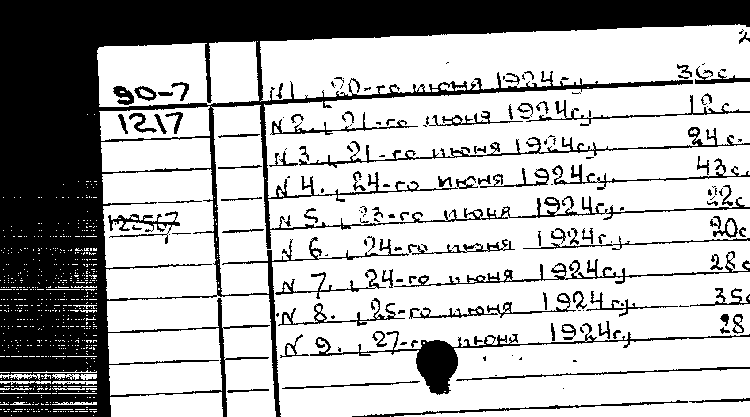 90-7 N1. [20-го июня 1924г.] 36с.
1217 N2. [21-го июня 1924г.] 12с.
N3. [21-го июня 1924г.] 24с.
N4. [24-го июня 1924г.] 43с.
122567 N5. [23-го июня 1924г.] 22с
N6. [24-го июня 1924г.] 20с
N7. [24-го июня 1924г.] 28с
N8. [25-го июня 1924г.] 35с
N9. [27-го июня 1924г.] 28